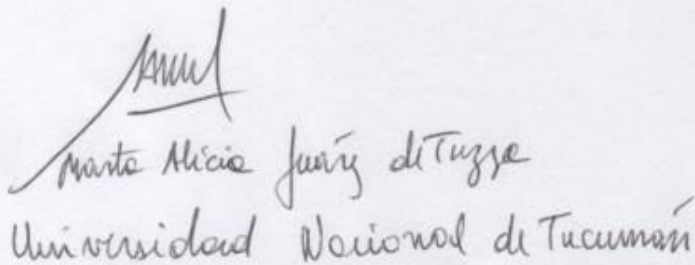 Marta Alicia Juárez de Tuzza
Universidad Nacional de Tucumán